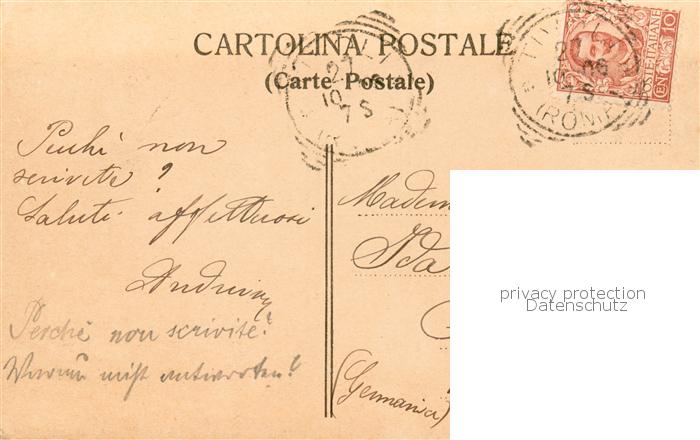 CARTOLINA POSTALE
(Carte Postale)
TIVOLI
27
10 06
7 S
(ROMA)
POSTE ITALIANE
CEN 10
Perchè non
scrivete?
Saluti affettuosi
Perchè non scrivite?
Warum nicht antworten?
Madem
Ida
(Germania)
privacy protection
Datenschutz